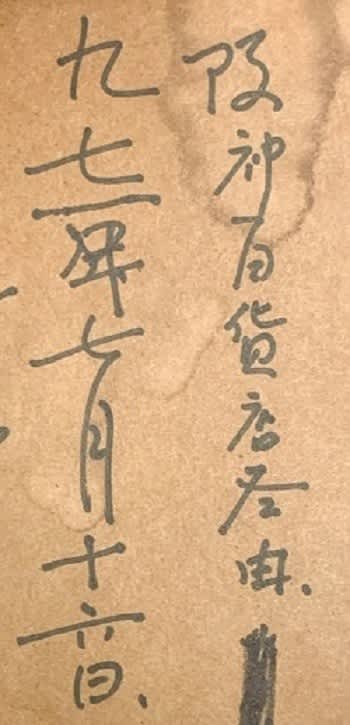 阪神百貨店圣由、
九七一年七月十六日、